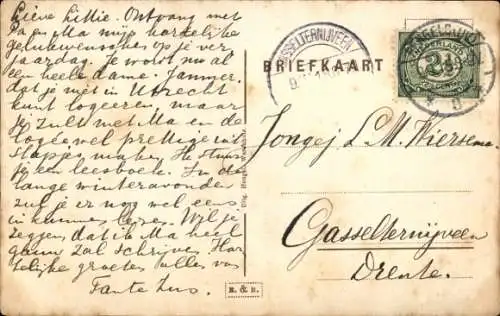 Lieve Littie. Ontvang met
Pa en Ma mijn hartelijke
gelukwenschen op je ver-
jaardag. Je wordt nu al
een heele dame. Jammer,
dat je niet in Utrecht
kunt logeeren, maar
je zult met Ma en de
logée wel prettige uit
stapjes maken. Ik stuur
je een leesboek. In de
lange winteravonden
zul je er nog wel eens
in kunnen lezen. Wil je
zeggen dat ik Ma heel
gauw zal schrijven. Har
telijke groeten alles van
Tante
BRIEFKAART
GASSELTERNIJVEEN
NEDERLAND
2½
Jongej. L. M. Wiersema.
Gasselternijveen
Drente.
R. & R.